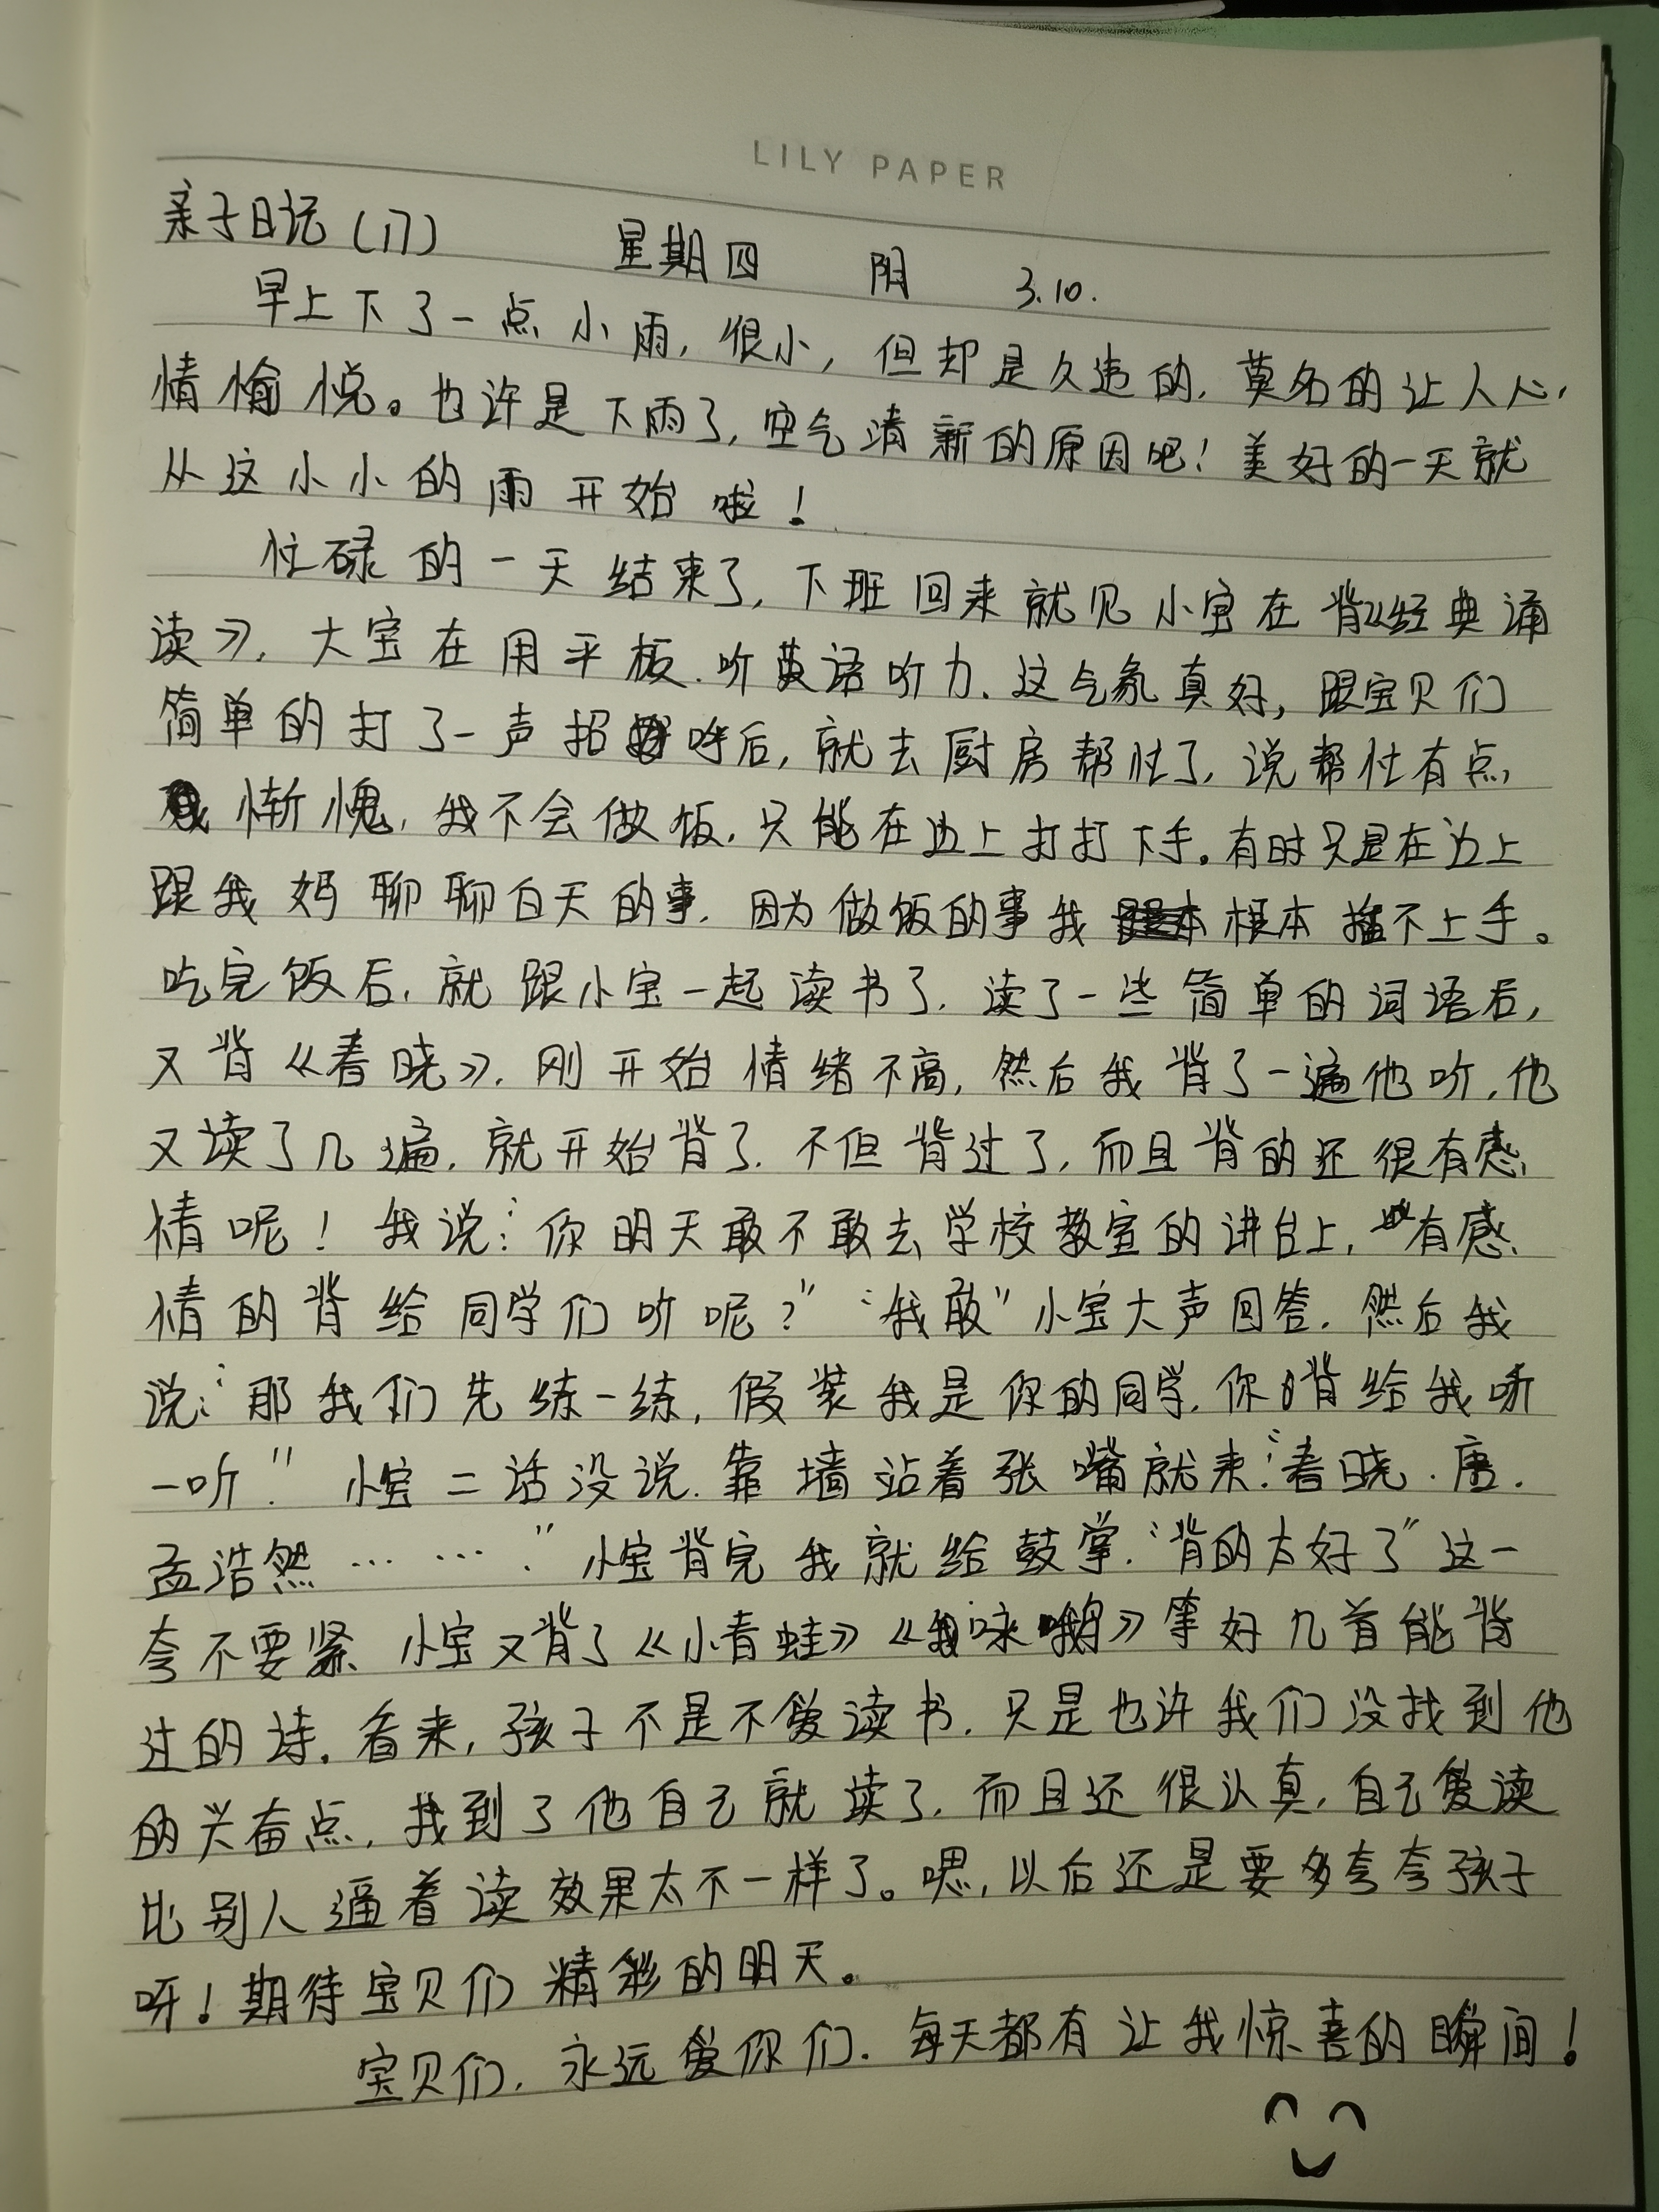 LILY PAPER
亲子日记(17) 星期四 阴 3.10.
早上下了一点小雨,很小,但却是久违的,莫名的让人心
情愉悦。也许是下雨了,空气清新的原因吧!美好的一天就
从这小小的雨开始啦!
忙碌的一天结束了,下班回来就见小宝在背《经典诵
读》,大宝在用平板.听英语听力.这气氛真好,跟宝贝们
简单的打了一声招呼后,就去厨房帮忙了,说帮忙有点,
惭愧,我不会做饭,只能在边上打打下手。有时只是在边上
跟我妈聊聊白天的事,因为做饭的事我根本插不上手。
吃完饭后,就跟小宝一起读书了,读了一些简单的词语后,
又背《春晓》,刚开始情绪不高,然后我背了一遍他听,他
又读了几遍,就开始背了.不但背过了,而且背的还很有感
情呢!我说:“你明天敢不敢去学校教室的讲台上,有感
情的背给同学们听呢?”“我敢”小宝大声回答.然后我
说:“那我们先练一练,假装我是你的同学,你背给我听
一听.”小宝二话没说.靠墙站着张嘴就来:“春晓.唐.
孟浩然……….”小宝背完我就给鼓掌.“背的太好了”这一
夸不要紧 小宝又背了《小青蛙》《咏鹅》等好几首能背
过的诗.看来,孩子不是不爱读书,只是也许我们没找到他
的兴奋点,找到了他自己就读了,而且还很认真,自己爱读
比别人逼着读效果太不一样了。嗯,以后还是要多夸夸孩子
呀!期待宝贝们精彩的明天。
宝贝们,永远爱你们.每天都有让我惊喜的瞬间!